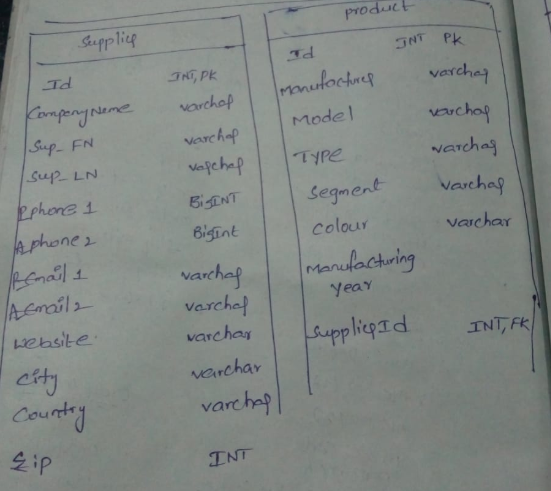 Supplier
Id INT, PK
CompanyName varchar
Sup_FN varchar
Sup_LN varchar
Pphone 1 BigINT
Aphone 2 Bigint
PEmail 1 varchar
AEmail 2 varchar
website varchar
City varchar
Country varchar
Zip INT
product
Id INT PK
Manufacturer varchar
Model varchar
TYPE varchar
Segment varchar
Colour varchar
Manufacturing
Year
SupplierId INT, FK